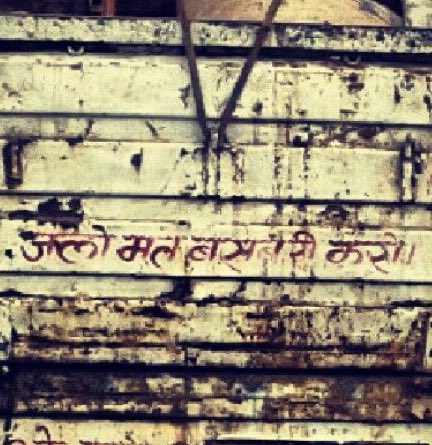 जलो मत बराबरी करो।